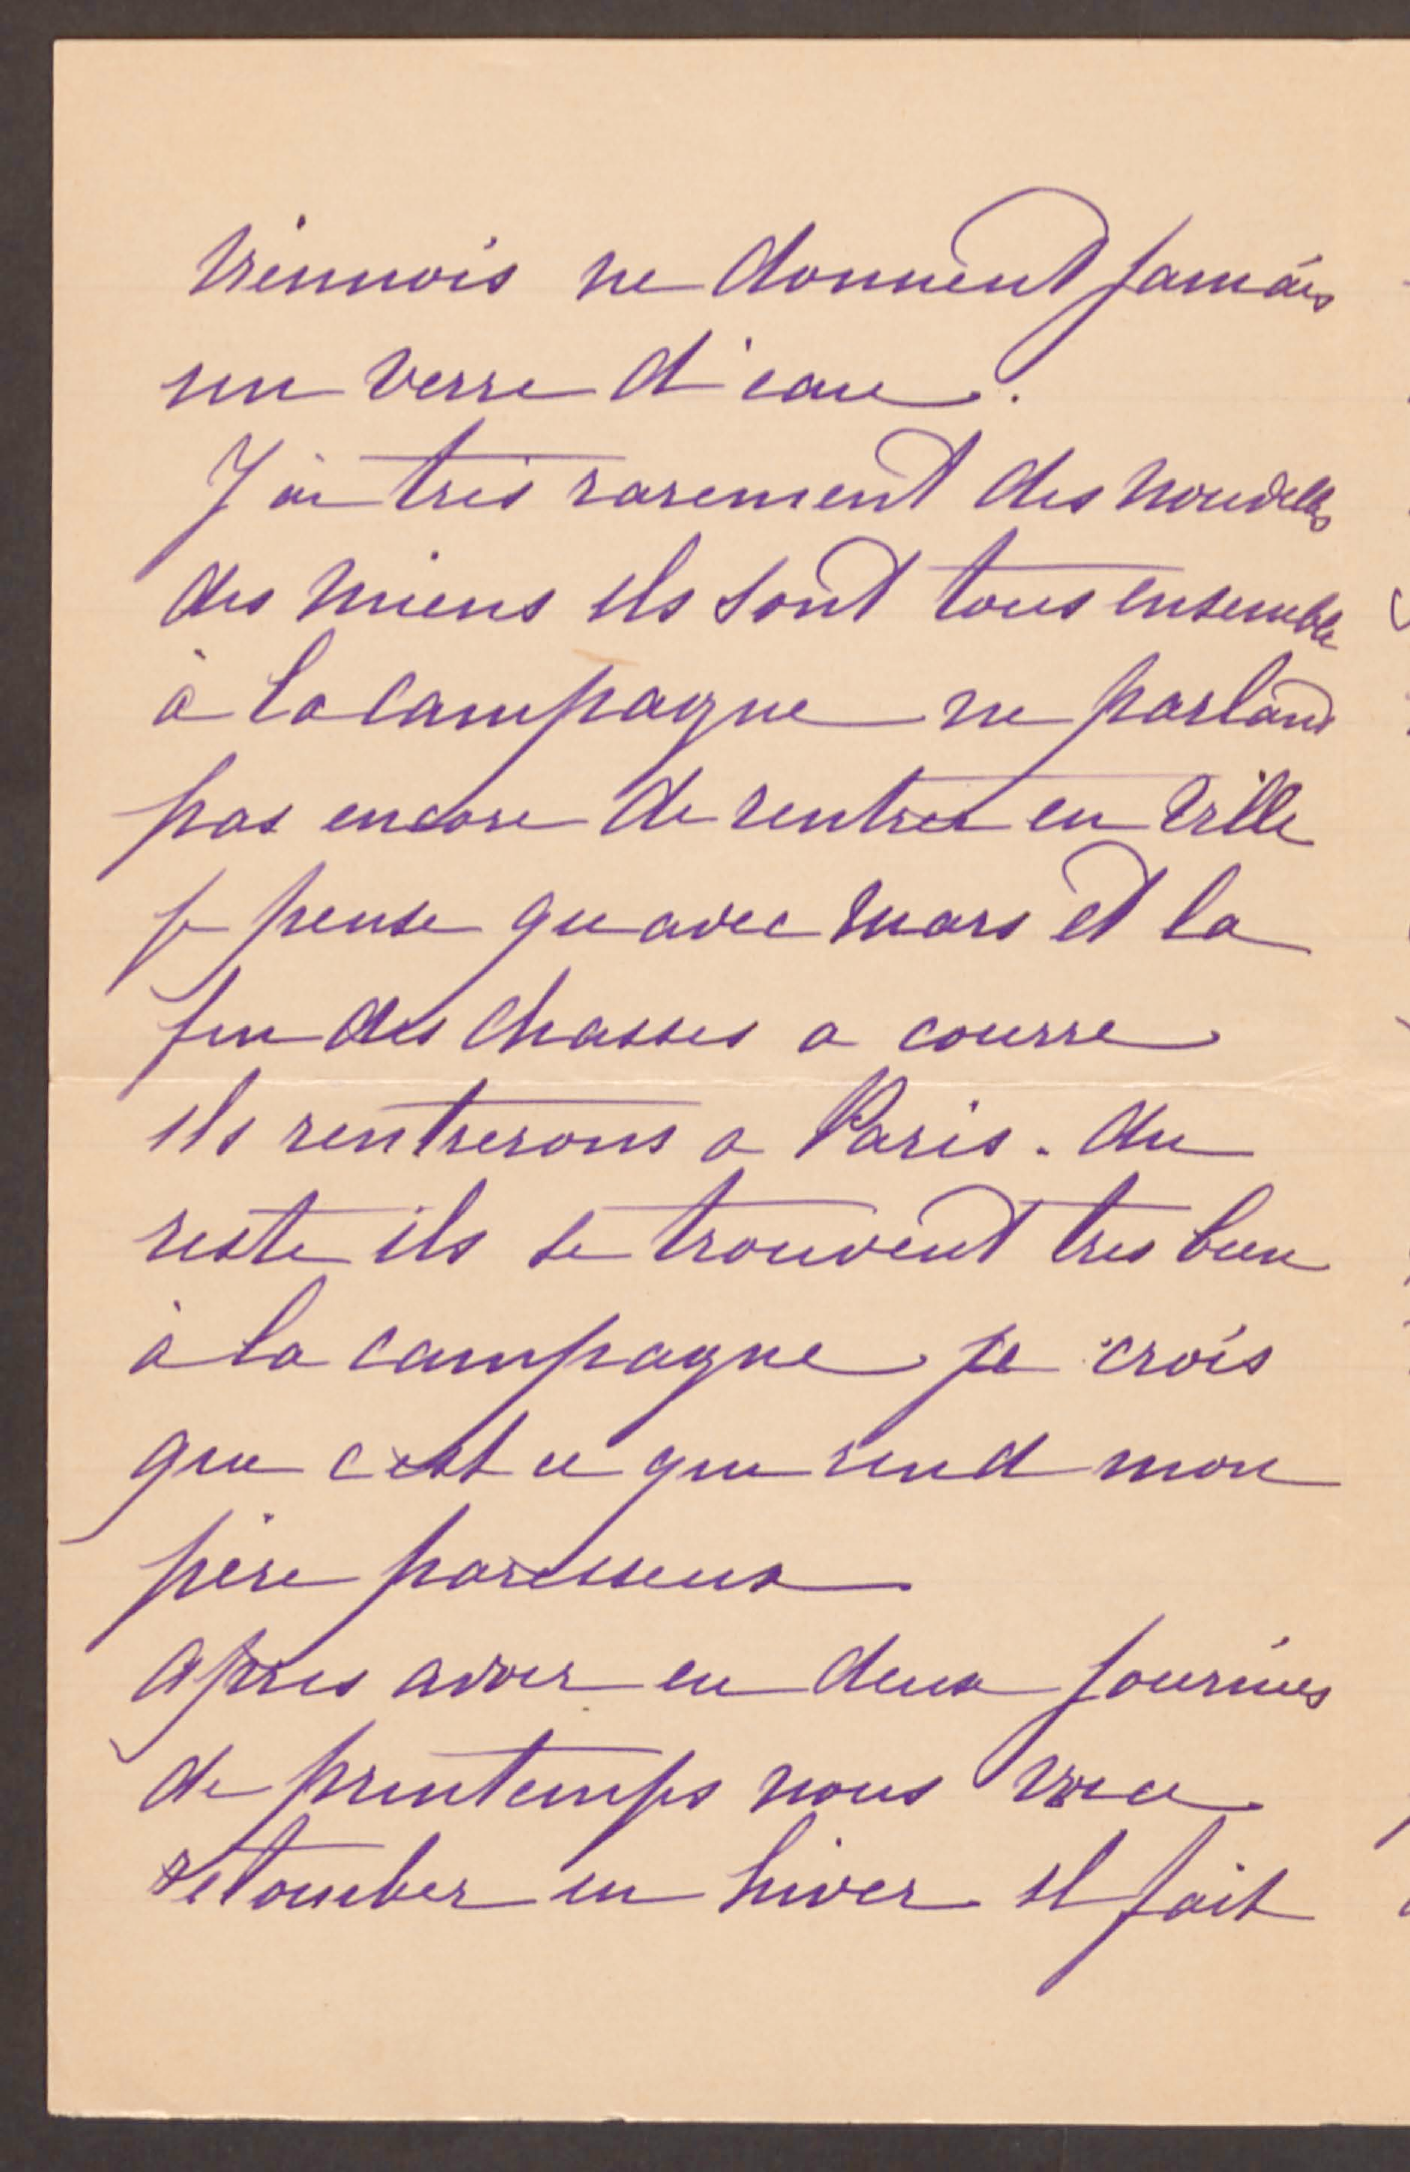 Viennois ne donnent jamais
un verre d'eau.
J'ai très rarement des nouvelles
des miens ils sont tous ensemble
à la campagne ne parlant
pas encore de rentrer en ville
je pense qu'avec mars et la
fin des chasses a courre
ils rentrerons a Paris. du
reste ils se trouvent tres bien
à la campagne je crois
que c'est ce qui rend mon
père paresseux
après avoir eu deux journées
de printemps nous
retomber en hiver il fait